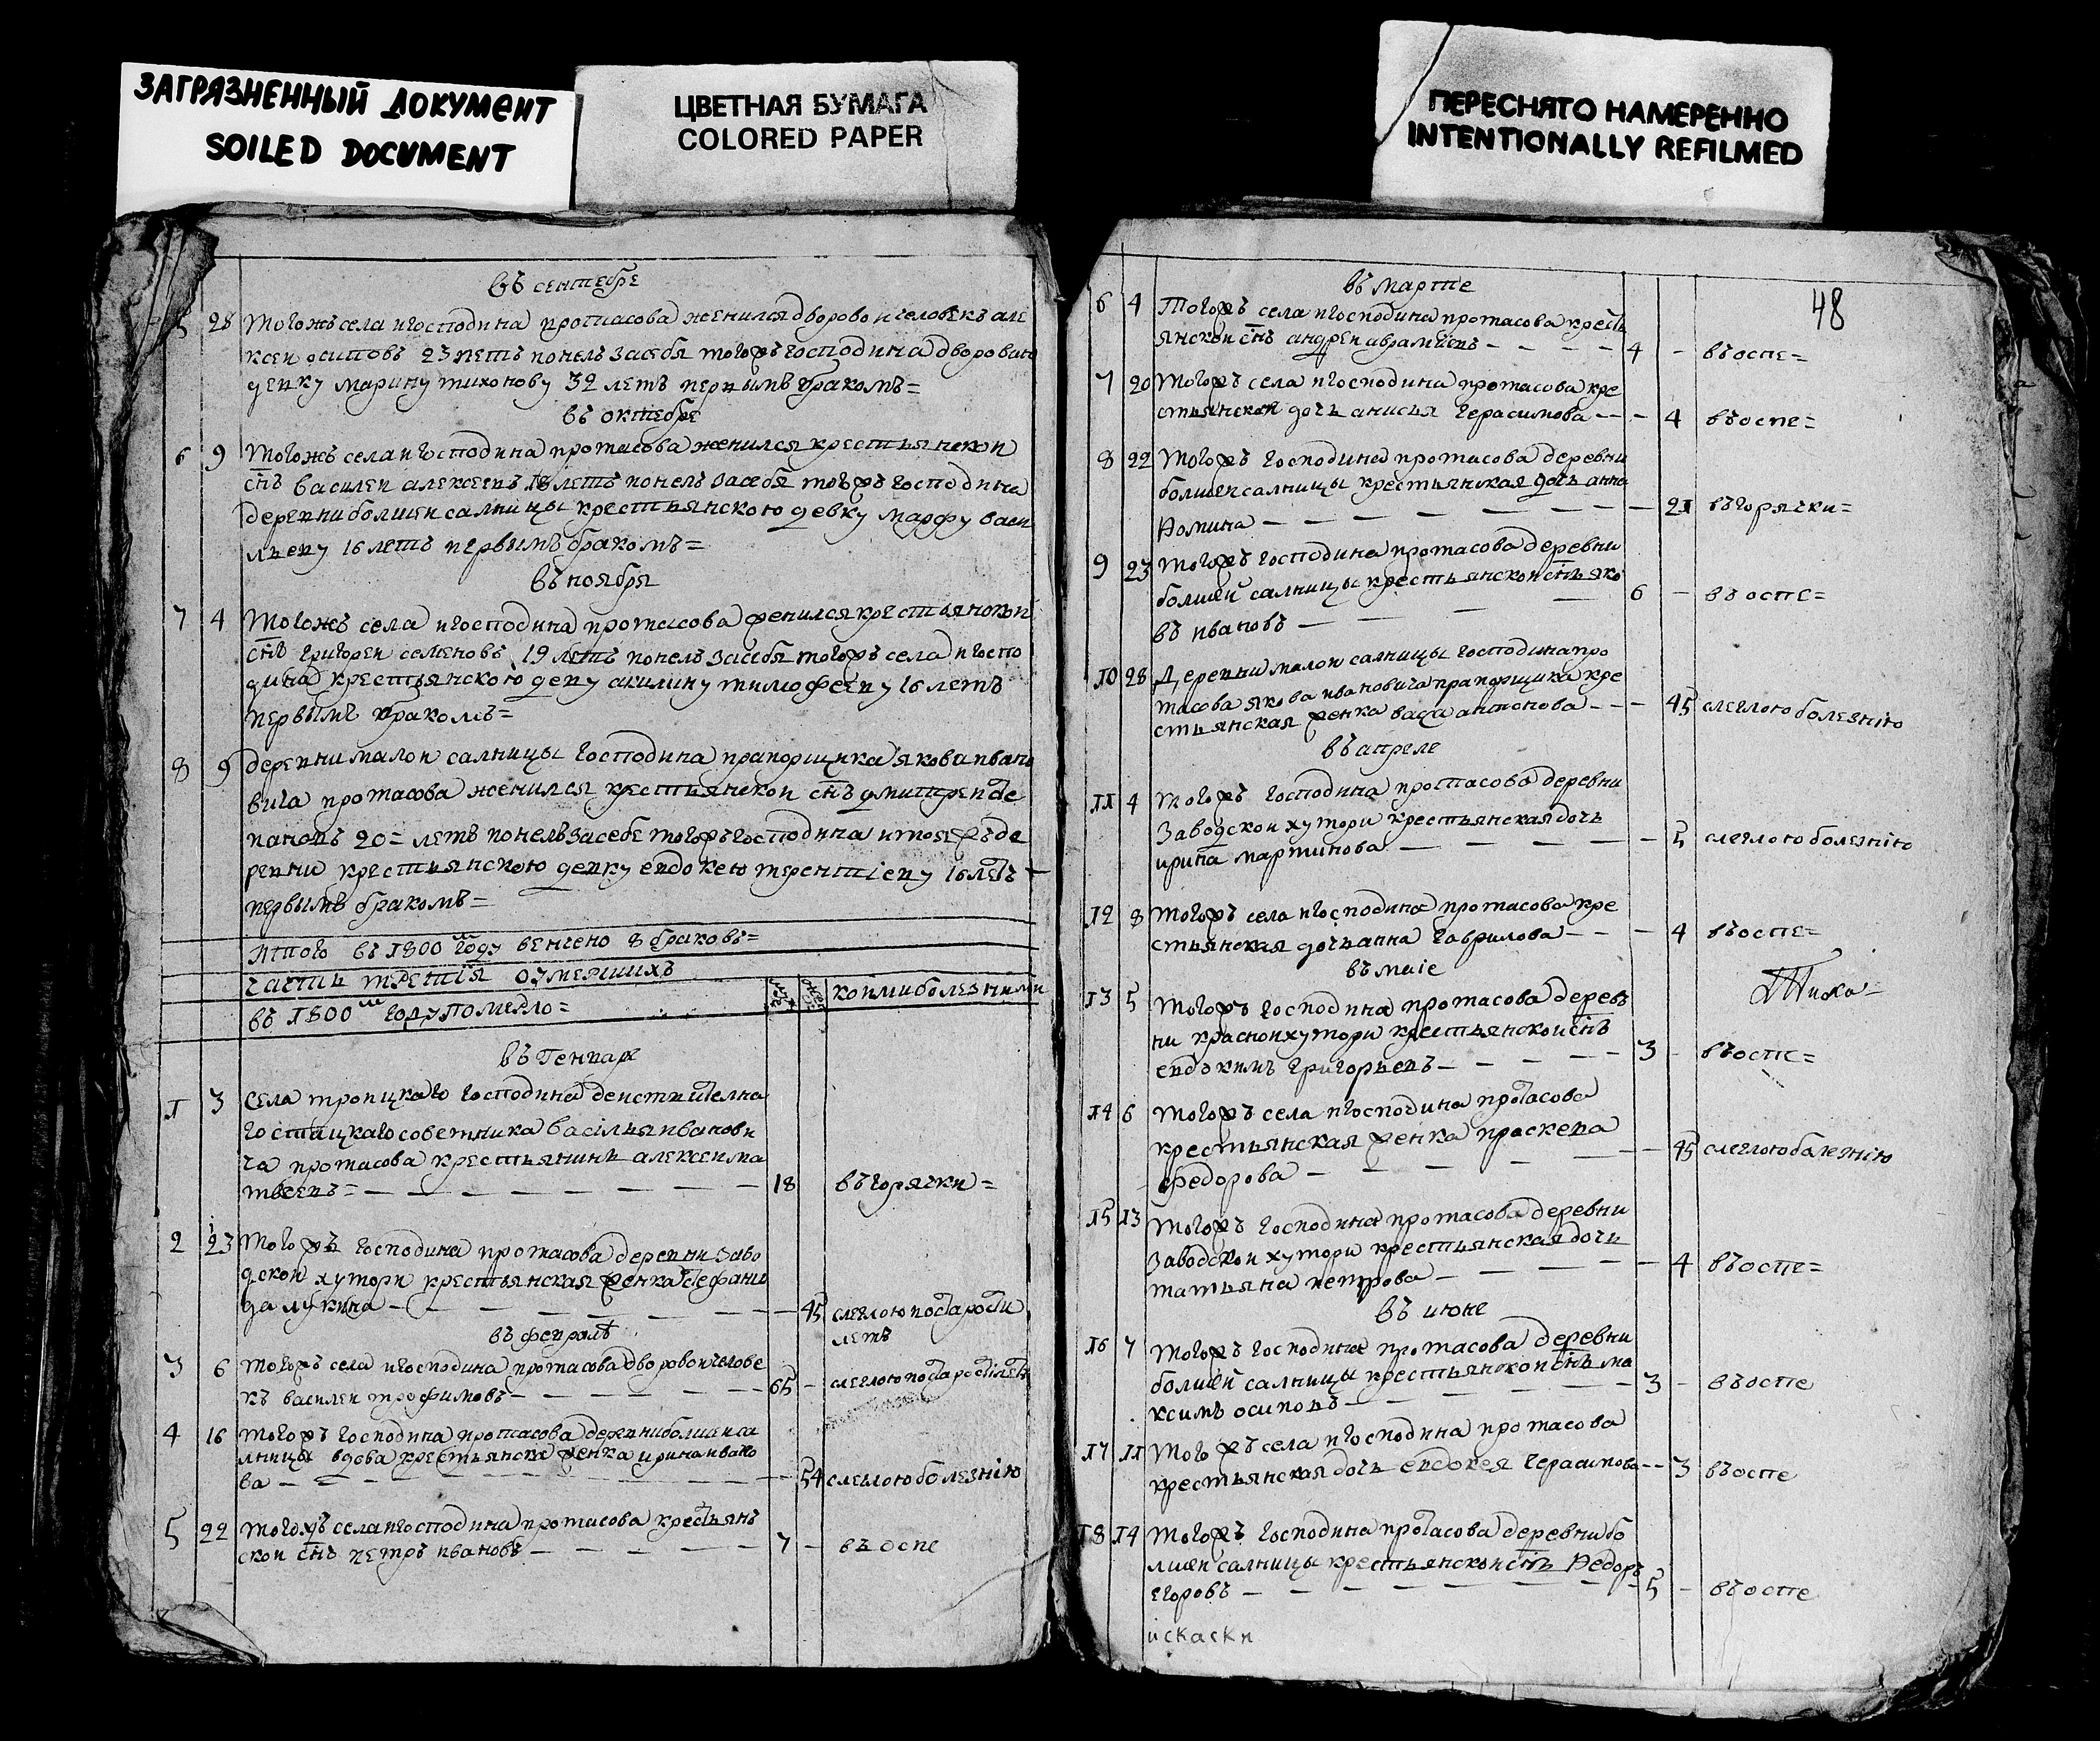 ЗАГРЯЗНЕННЫЙ ДОКУМЕНТ
SOILED DOCUMENT
ЦВЕТНАЯ БУМАГА
COLORED PAPER
ПЕРЕСНЯТО НАМЕРЕННО
INTENTIONALLY REFILMED
въ сентебре
5 28 тогожъ села игосподина протасова женился дворовои человекъ але
ксеи осиповъ 23 летъ понелъ засебя тогожъ господина дворовою
девку марину тихонову 32 летъ первымъ бракомъ=
въ октебре
6 9 тогожъ села игосподина протасова женился крестьянскои
снъ василеи алексеевъ 18 летъ понелъ засебя тогожъ господина
деревни болшеи салницы крестьянскою девку марфу васи
льеву 16 летъ первымъ бракомъ=
въ ноября
7 4 тогожъ села игосподина протасова женился крестьянскои
снъ григореи семеновъ 19 летъ понелъ засебя тогожъ села игоспо
дина крестьянскою девку акилину тимофееву 16 летъ
первымъ бракомъ=
8 9 деревни малои салницы господина прапорщика якова ивано
вича протасова женился крестьянскои снъ дмитреи сте
пановъ 20= летъ понелъ засебе тогожъ господина итоеже де
ревни крестьянскою девку евдокею терентіеву 16 летъ
первымъ бракомъ=
итого въ 1800м году венчено 8 браковъ=
часть третія оумершихъ
въ 1800м году померло= коими болезними
въ генваре
1 3 села троицкаго господина деиствителна
го статцкаго советника васілья иванови
ча протасова крестьянинъ алексеи ма
твеевъ= 18 въ горячки=
2 23 тогожъ господина протасова деревни заво
дскои хутори крестьянская женка стефани
да лукина 45 слеглою постарости
летъ
въ феврале
3 6 тогожъ села игосподина протасова дворовои челове
къ василеи трофимовъ 65 - слеглою постаростілетъ
4 16 тогожъ господина протасова деревни болшеи са
лницы вдова крестьянска женка ирина ивано
ва 54 слеглою болезнію
5 22 тогожъ села игосподина протасова крестьянъ
скои снъ петръ ивановъ 7 - въ оспе
48
въ марте
6 4 тогожъ села игосподина протасова кресть
янскои снъ андреи аврамеевъ 4 - въ оспе=
7 20 тогожъ села игосподина протасова кре
стьянская дочь анисья герасимова - 4 въ оспе=
8 22 тогожъ господина протасова деревни
болшеи салницы крестьянская дочь анна
фомина - 21 въ горячки=
9 23 тогожъ господина протасова деревни
болшеи салницы крестьянскои снъ яко
въ ивановъ 6 - въ оспе=
10 28 деревни малои салницы господина про
тасова якова ивановича прапорщика кре
стьянская женка васа антонова - 45 слеглою болезнію
въ апреле
11 4 тогожъ господина протасова деревни
заводскои хутори крестьянская дочь
ирина мартинова - 5 слеглою болезнію
12 8 тогожъ села игосподина протасова кре
стьянская дочь анна гаврилова - 4 въ оспе=
въ маіе
13 5 тогожъ господина протасова дерев
ни краснои хутори крестьянскои снъ
евдокимъ григорьевъ 3 - въ оспе=
14 6 тогожъ села игосподина протасова
крестьянская женка праскева
федорова - 45 слеглою болезнію
15 13 тогожъ господина протасова деревни
заводскои хутори крестьянская дочь
татьяна петрова - 4 въ оспе=
въ июне
16 7 тогожъ господина протасова деревни
болшеи салницы крестьянскои снъ ма
ксимъ осиповъ 3 - въ оспе
17 11 тогожъ села игосподина протасова
крестьянская дочь евдокея герасимова - 3 въ оспе
18 14 тогожъ господина протасова деревни бо
лшеи салницы крестьянскои снъ федоръ
егоровъ 5 - въ оспе
искаски